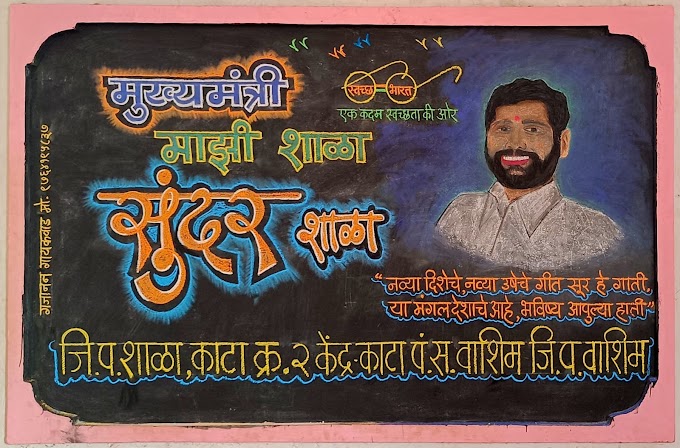 मुख्यमंत्री
माझी शाळा
सुंदर शाळा
स्वच्छ भारत
एक कदम स्वच्छता की ओर
"नव्या दिशेचे, नव्या उषेचे गीत सूर हे गाती,
या मंगलदेशाचे आहे, भविष्य आपुल्या हाती"
जि.प.शाळा, काटा क्र.२ केंद्र-काटा पं.स.वाशिम जि.प.वाशिम
गजानन गायकवाड मो.